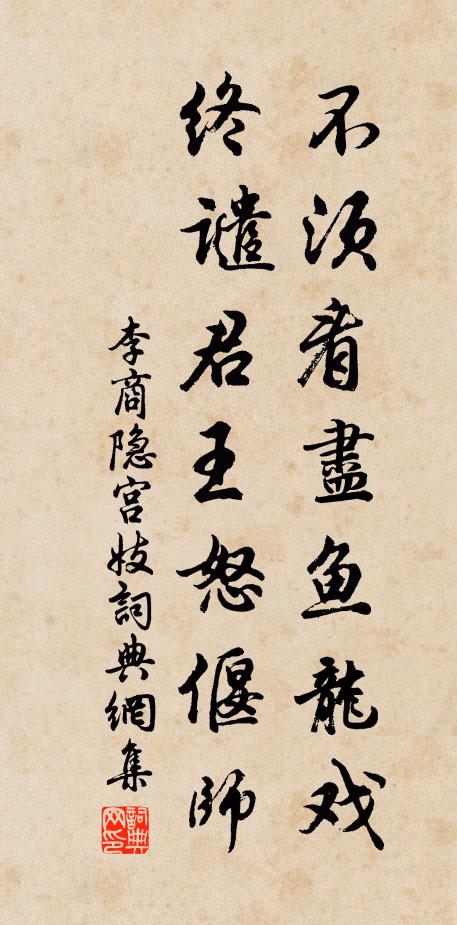 不須看盡鱼龍戏
终譴君王怒偃師
李商隐宫妓詞典網集
詞典网印